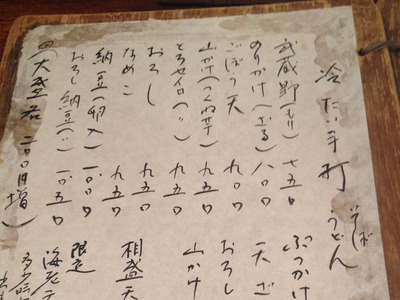 冷たい手打 そば うどん
武蔵野(もり) 七五〇
のりかけ(ざる) 八〇〇
ごぼう天 九〇〇
山かけ(つくね芋) 九五〇
とろセイロ(〃) 九五〇
おろし 九五〇
なめこ 九五〇
納豆(卵入) 一〇〇〇
おろし納豆(〃) 一〇五〇
(大盛各 二〇〇円増)
ぶっかけ
天ざ
おろし
山かけ
相盛天
限定
海老天